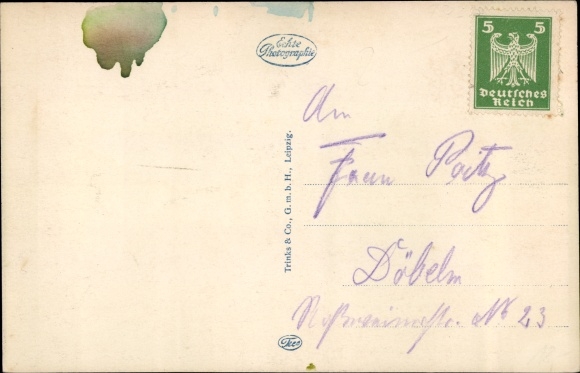 5 5
Deutsches
Reich
Echte
Photographie
Trinks & Co., G. m. b. H., Leipzig.
An
Frau
Döbeln
No 23